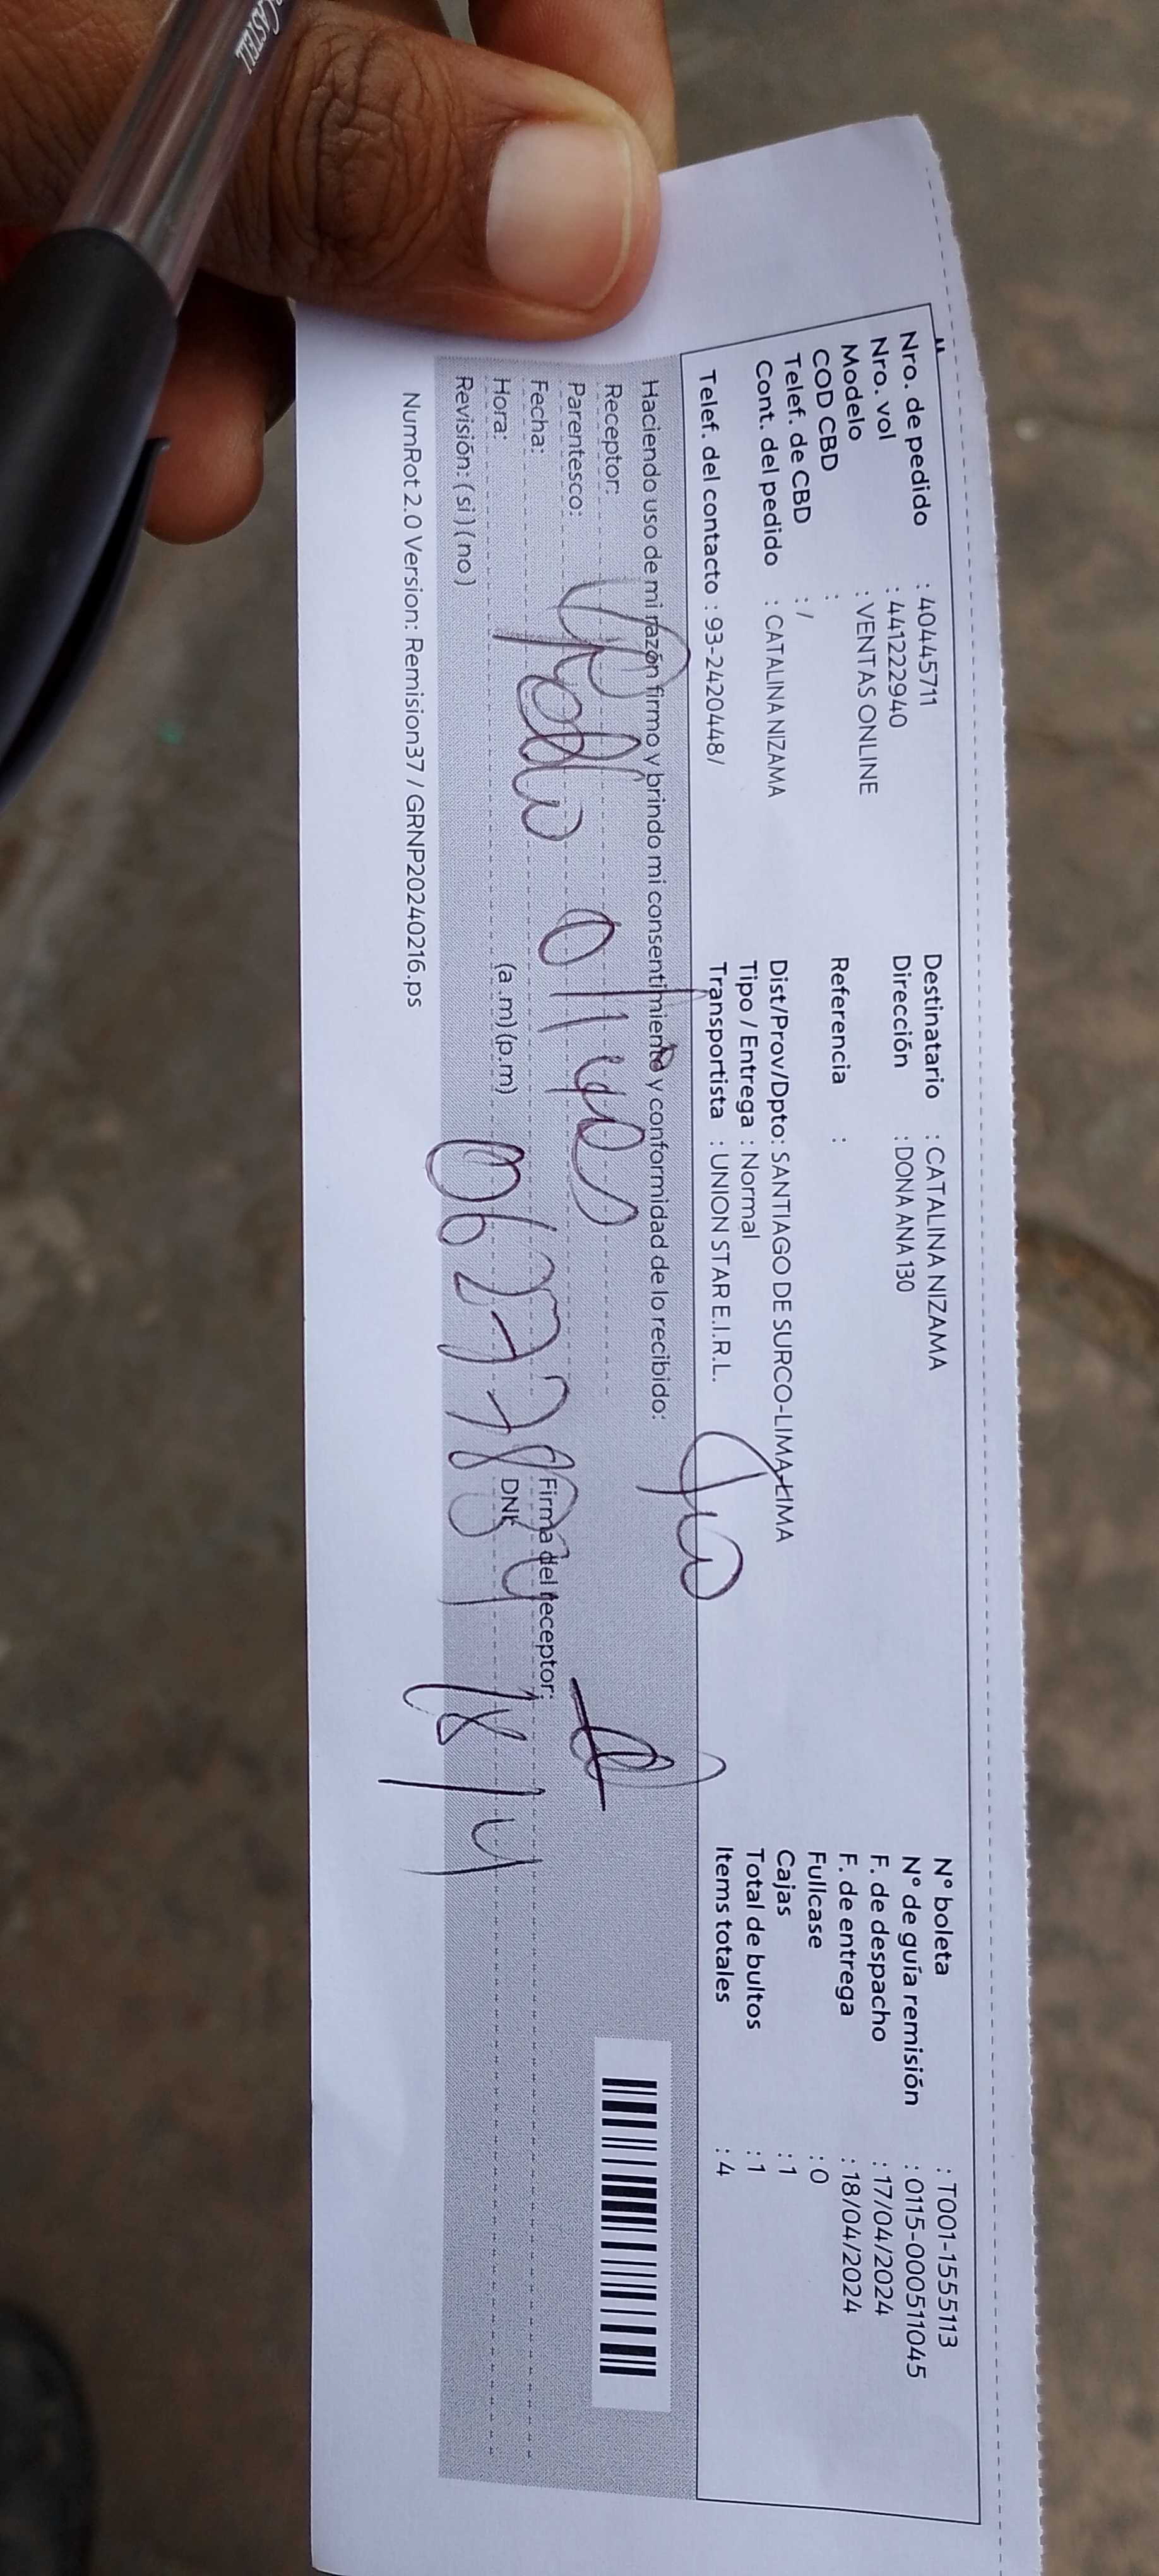 Nro. de pedido : 40445711
Nro. vol : 441222940
Modelo : VENTAS ONLINE
COD CBD :
Telef. de CBD : /
Cont. del pedido : CATALINA NIZAMA
Telef. del contacto : 93-2420448/
Destinatario : CATALINA NIZAMA
Dirección : DONA ANA 130
Referencia :
Dist/Prov/Dpto: SANTIAGO DE SURCO-LIMA-LIMA
Tipo / Entrega : Normal
Transportista : UNION STAR E.I.R.L.
N° boleta : T001-1555113
N° de guía remisión : 0115-000511045
F. de despacho : 17/04/2024
F. de entrega : 18/04/2024
Fullcase : 0
Cajas : 1
Total de bultos : 1
Items totales : 4
Haciendo uso de mi razón firmo y brindo mi consentimiento y conformidad de lo recibido:
Receptor:
Parentesco:
Fecha:
Hora: (a.m) (p.m)
Revisión: (si) (no)
Firma del receptor:
DNI:
18/4
NumRot 2.0 Version: Remision37 / GRNP20240216.ps
CASTELL